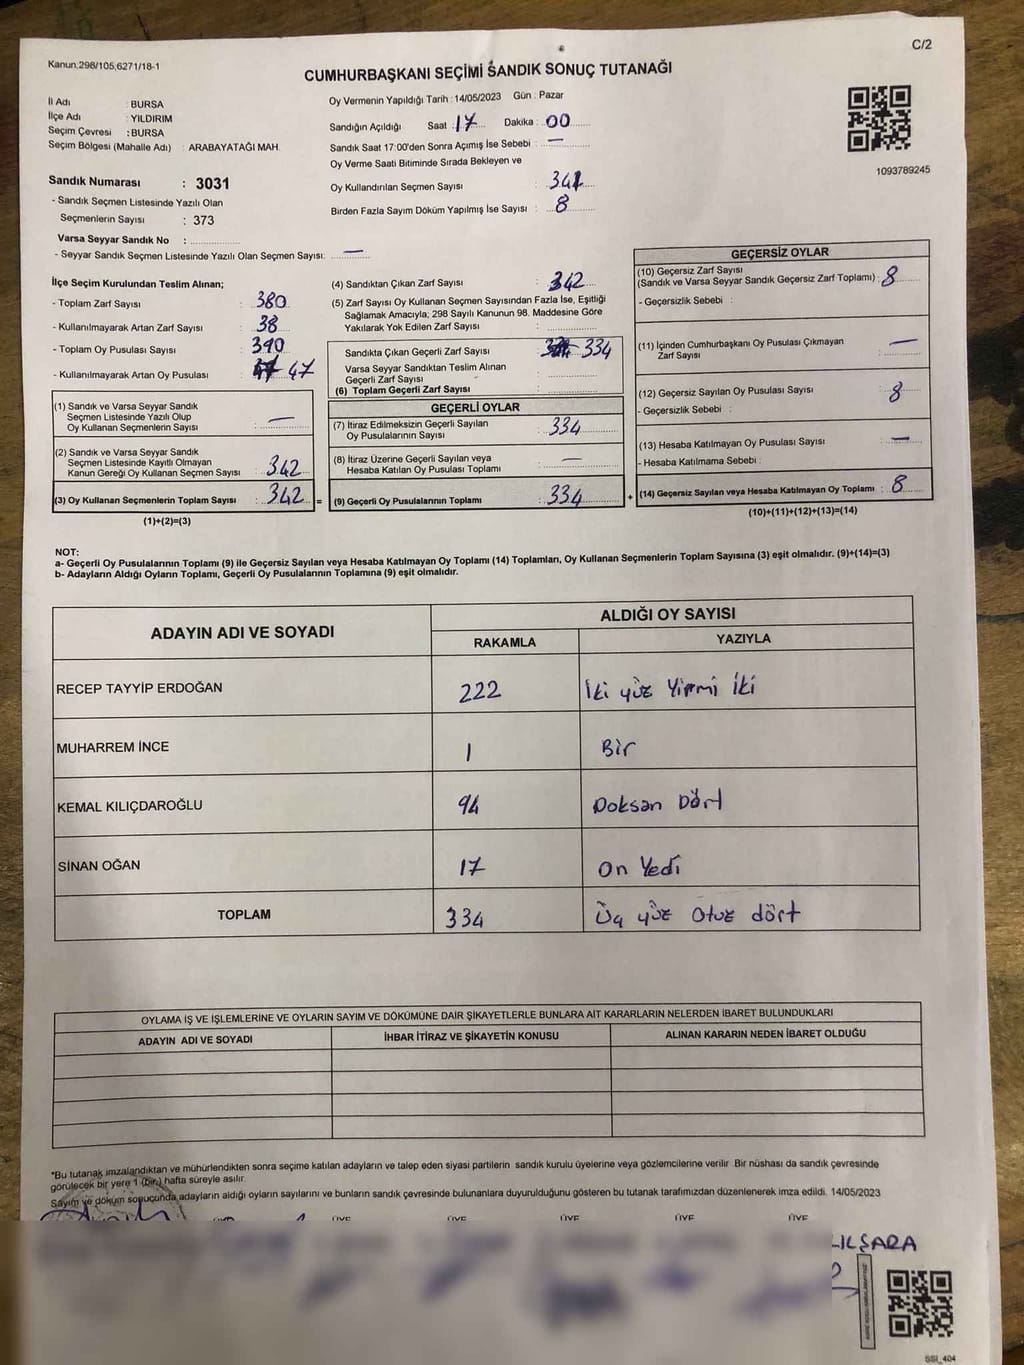 C/2
Kanun.298/105,6271/18-1
CUMHURBAŞKANI SEÇİMİ SANDIK SONUÇ TUTANAĞI
İl Adı : BURSA
İlçe Adı : YILDIRIM
Seçim Çevresi : BURSA
Seçim Bölgesi (Mahalle Adı) : ARABAYATAĞI MAH.
Sandık Numarası : 3031
- Sandık Seçmen Listesinde Yazılı Olan
Seçmenlerin Sayısı : 373
Varsa Seyyar Sandık No :
- Seyyar Sandık Seçmen Listesinde Yazılı Olan Seçmen Sayısı: —
Oy Vermenin Yapıldığı Tarih : 14/05/2023 Gün : Pazar
Sandığın Açıldığı Saat : 17 Dakika : 00
Sandık Saat 17:00'den Sonra Açımış İse Sebebi : —
Oy Verme Saati Bitiminde Sırada Bekleyen ve
Oy Kullandırılan Seçmen Sayısı :
Birden Fazla Sayım Döküm Yapılmış İse Sayısı : 8
1093789245
İlçe Seçim Kurulundan Teslim Alınan;
- Toplam Zarf Sayısı : 380
- Kullanılmayarak Artan Zarf Sayısı : 38
- Toplam Oy Pusulası Sayısı : 390
- Kullanılmayarak Artan Oy Pusulası : 47
(1) Sandık ve Varsa Seyyar Sandık
Seçmen Listesinde Yazılı Olup
Oy Kullanan Seçmenlerin Sayısı : —
(2) Sandık ve Varsa Seyyar Sandık
Seçmen Listesinde Kayıtlı Olmayan
Kanun Gereği Oy Kullanan Seçmen Sayısı : 342
(3) Oy Kullanan Seçmenlerin Toplam Sayısı : 342 =
(1)+(2)=(3)
(4) Sandıktan Çıkan Zarf Sayısı : 342
(5) Zarf Sayısı Oy Kullanan Seçmen Sayısından Fazla İse, Eşitliği
Sağlamak Amacıyla; 298 Sayılı Kanunun 98. Maddesine Göre
Yakılarak Yok Edilen Zarf Sayısı :
Sandıkta Çıkan Geçerli Zarf Sayısı : 334
Varsa Seyyar Sandıktan Teslim Alınan
Geçerli Zarf Sayısı :
(6) Toplam Geçerli Zarf Sayısı :
GEÇERLİ OYLAR
(7) İtiraz Edilmeksizin Geçerli Sayılan
Oy Pusulalarının Sayısı : 334
(8) İtiraz Üzerine Geçerli Sayılan veya
Hesaba Katılan Oy Pusulası Toplamı : —
(9) Geçerli Oy Pusulalarının Toplamı : 334 +
GEÇERSİZ OYLAR
(10) Geçersiz Zarf Sayısı
(Sandık ve Varsa Seyyar Sandık Geçersiz Zarf Toplamı) : 8
- Geçersizlik Sebebi :
(11) İçinden Cumhurbaşkanı Oy Pusulası Çıkmayan
Zarf Sayısı : —
(12) Geçersiz Sayılan Oy Pusulası Sayısı : 8
- Geçersizlik Sebebi :
(13) Hesaba Katılmayan Oy Pusulası Sayısı : —
- Hesaba Katılmama Sebebi :
(14) Geçersiz Sayılan veya Hesaba Katılmayan Oy Toplamı : 8
(10)+(11)+(12)+(13)=(14)
NOT:
a- Geçerli Oy Pusulalarının Toplamı (9) ile Geçersiz Sayılan veya Hesaba Katılmayan Oy Toplamı (14) Toplamları, Oy Kullanan Seçmenlerin Toplam Sayısına (3) eşit olmalıdır. (9)+(14)=(3)
b- Adayların Aldığı Oyların Toplamı, Geçerli Oy Pusulalarının Toplamına (9) eşit olmalıdır.
ADAYIN ADI VE SOYADI
ALDIĞI OY SAYISI
RAKAMLA YAZIYLA
RECEP TAYYİP ERDOĞAN 222 İki yüz Yirmi İki
MUHARREM İNCE 1 Bir
KEMAL KILIÇDAROĞLU 94 Doksan Dört
SİNAN OĞAN 17 On Yedi
TOPLAM 334 Üç yüz Otuz dört
OYLAMA İŞ VE İŞLEMLERİNE VE OYLARIN SAYIM VE DÖKÜMÜNE DAİR ŞİKAYETLERLE BUNLARA AİT KARARLARIN NELERDEN İBARET BULUNDUKLARI
ADAYIN ADI VE SOYADI İHBAR İTİRAZ VE ŞİKAYETİN KONUSU ALINAN KARARIN NEDEN İBARET OLDUĞU
*Bu tutanak imzalandıktan ve mühürlendikten sonra seçime katılan adayların ve talep eden siyasi partilerin sandık kurulu üyelerine veya gözlemcilerine verilir. Bir nüshası da sandık çevresinde
görülecek bir yere 1 (bir) hafta süreyle asılır.
Sayım ve döküm sonucunda adayların aldığı oyların sayılarını ve bunların sandık çevresinde bulunanlara duyurulduğunu gösteren bu tutanak tarafımızdan düzenlenerek imza edildi. 14/05/2023
ÜYE ÜYE ÜYE ÜYE ÜYE ÜYE
SSI_404